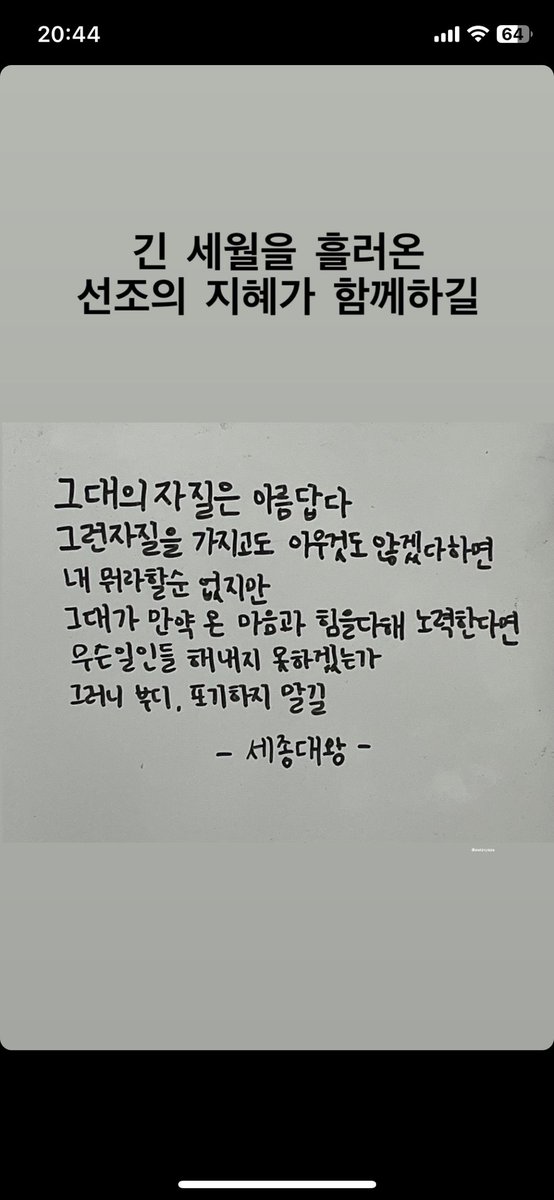 20:44
64
긴 세월을 흘러온
선조의 지혜가 함께하길
그대의 자질은 아름답다
그런자질을 가지고도 아무것도 않겠다하면
내 뭐라할순 없지만
그대가 만약 온 마음과 힘을다해 노력한다면
무슨일인들 해내지 못하겠는가
그러니 부디, 포기하지 말길
- 세종대왕 -